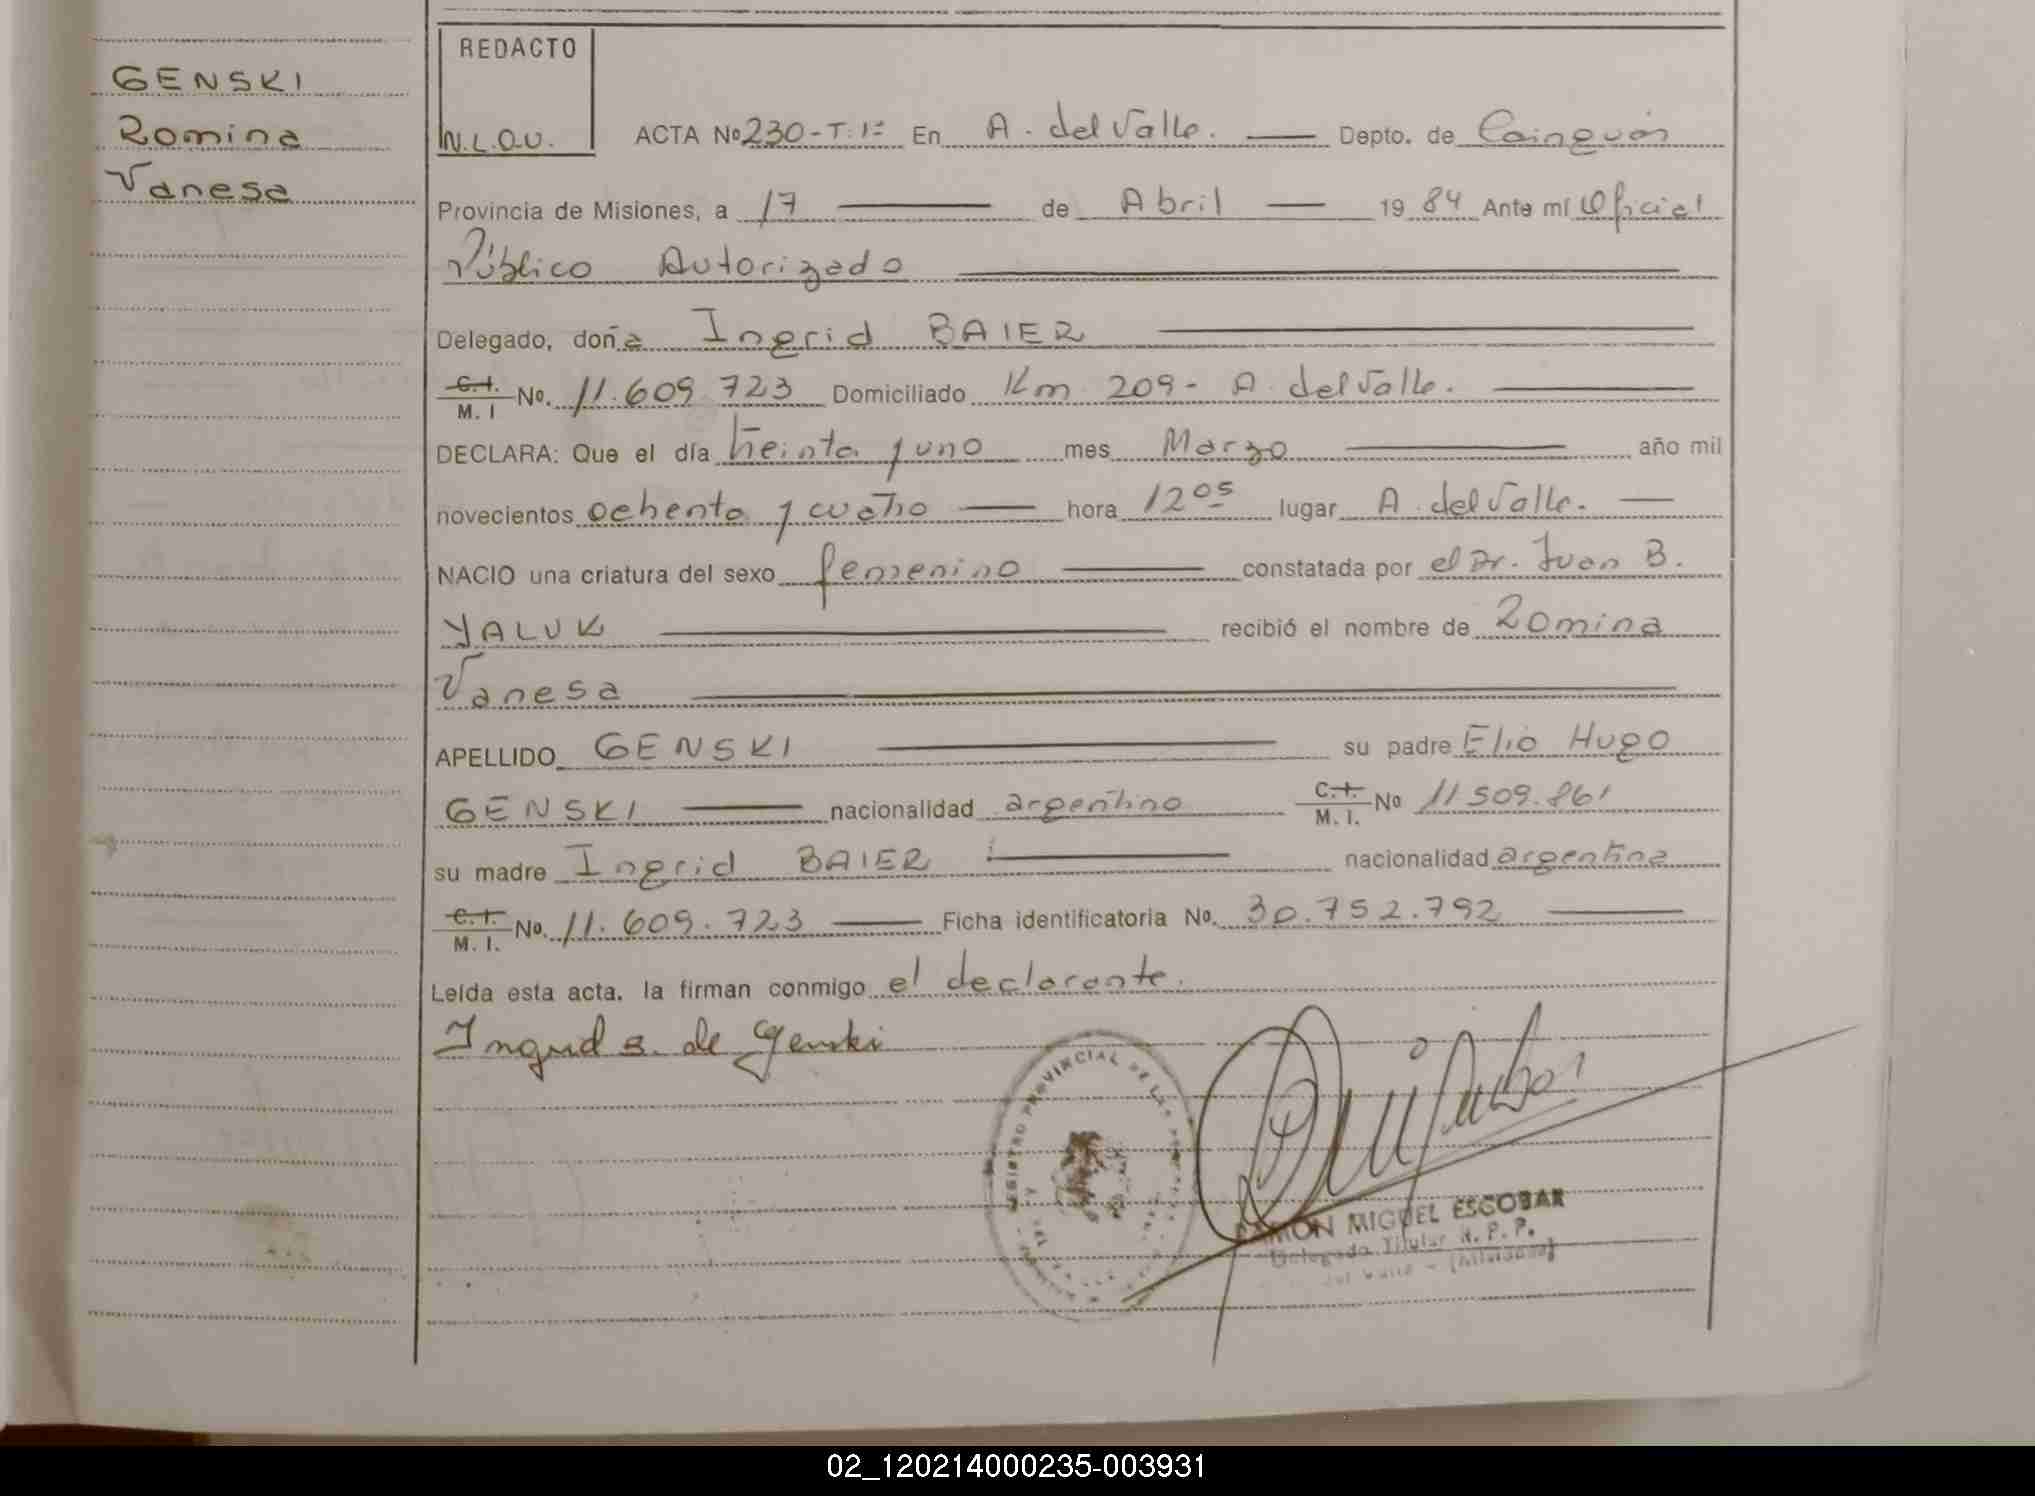 GENSKI
Romina
Vanesa
REDACTO
N.L.O.U.
ACTA Nº 230-T:1º En A. del Valle. Depto. de Cainguás
Provincia de Misiones, a 17 de Abril 19 84 Ante mí Oficial
Público Autorizado
Delegado, doña Ingrid BAIER
C.I. M. I Nº. 11.609.723 Domiciliado Km 209- A. del Valle.
DECLARA: Que el día treinta y uno mes Marzo año mil
novecientos ochenta y cuatro hora 12 05 lugar A. del Valle.
NACIO una criatura del sexo femenino constatada por el Dr. Juan B.
YALUK recibió el nombre de Romina
Vanesa
APELLIDO GENSKI su padre Elio Hugo
GENSKI nacionalidad argentino C.I. M. I. Nº 11509.861
su madre Ingrid BAIER nacionalidad argentina
C.I. M. I. Nº. 11.609.723 Ficha identificatoria Nº. 30.752.792
Leída esta acta, la firman conmigo el declarante.
Ingrid B. de Genski
REGISTRO PROVINCIAL DE LAS
RAMON MIGUEL ESCOBAR
Delegado Titular R. P. P.
del Valle - (Misiones)
02_120214000235-003931